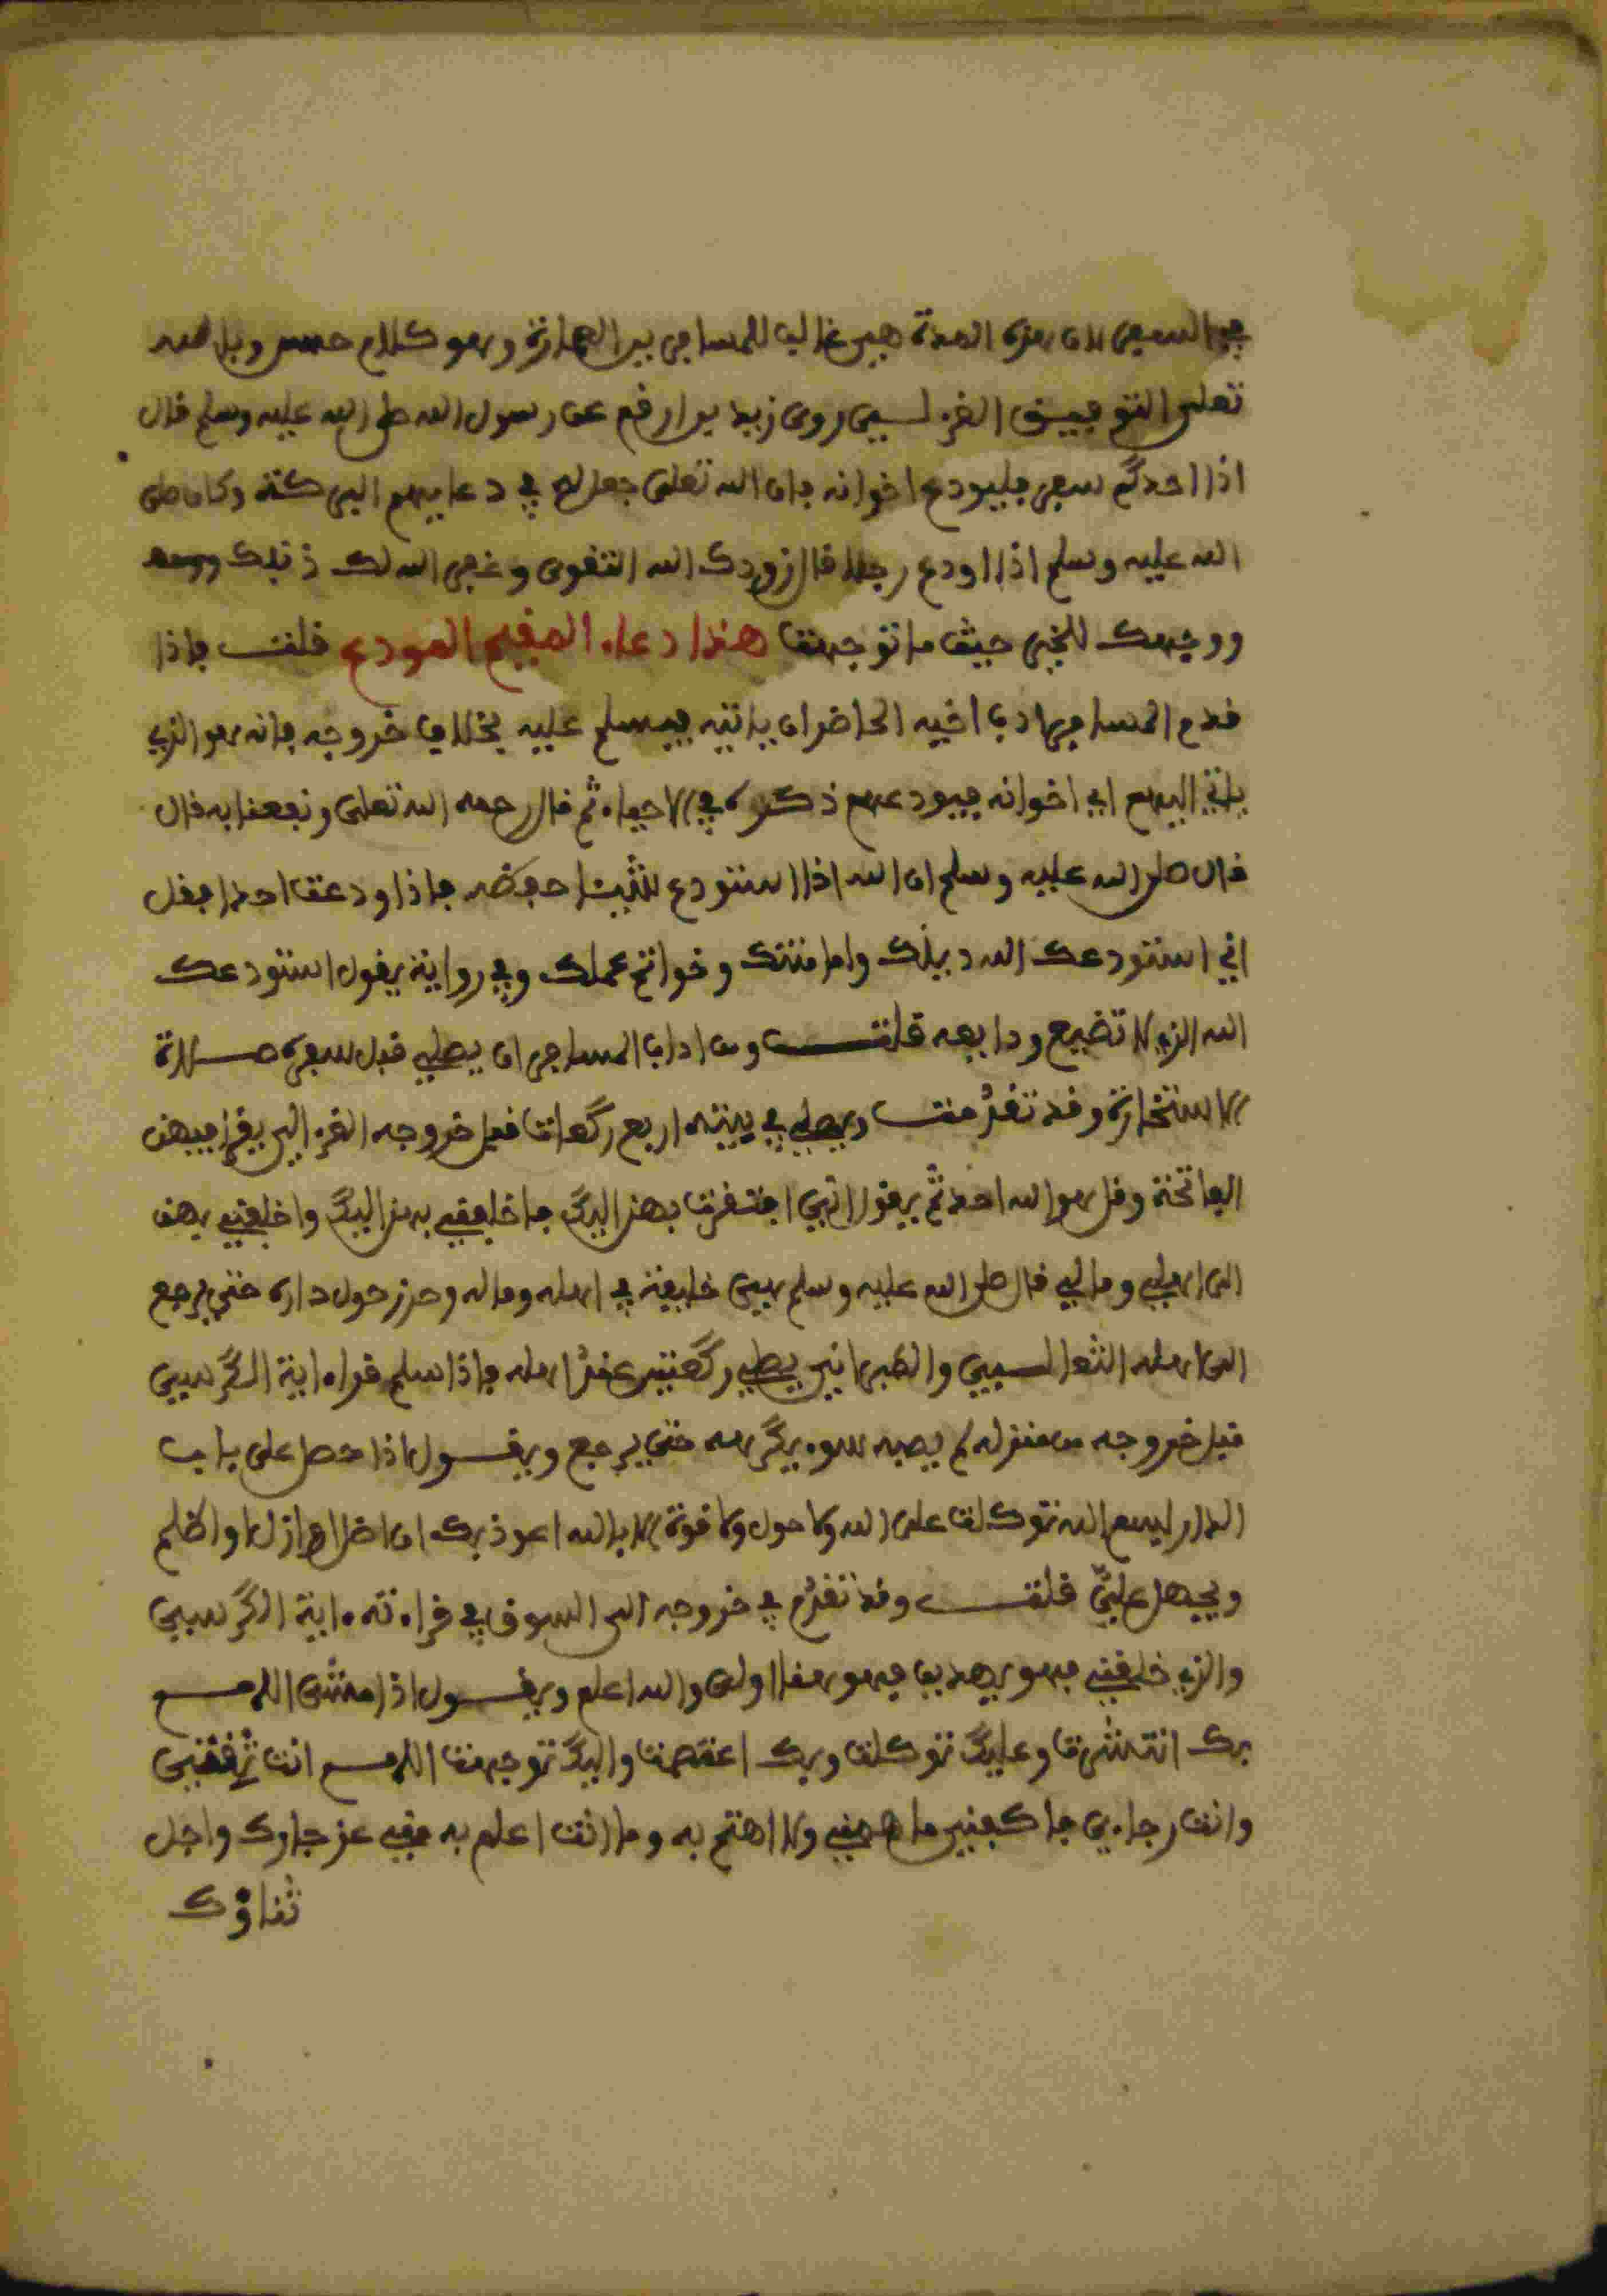 في السفر لان هذه المدة هي غالب للمسافر بين العمارة وهو كلام حسن وبالله
تعلى التوفيق الغزلسي روى زيد بن ارقم عن رسول الله صلى الله عليه وسلم قال
اذا احدكم سفر فليودع اخوانه فان الله تعلى جعل له في دعايهم البركة وكان صلى
الله عليه وسلم اذا اودع رجلا قال زودك الله التقوى وغفر الله لك ذنبك
ووجهك للخير حيث ما توجهت هذا دعاء المقيم المودع قلت فاذا
قدم المسافر فادب اخيه الحاضر ان ياتيه فيسلم عليه بخلاف خروجه فانه هو الذي
ياتي اليهم اي اخوانه فيودعهم ذكره في الاحياء ثم قال رحمه الله تعلى ونفعنا به قال
قال صلى الله عليه وسلم ان الله اذا استودع شيئا حفظه فاذا ودعت احدا فقل
اني استودعك الله دينك وامانتك وخواتم عملك وفي رواية يقول استودعك
الله الذي لا تضيع ودايعه قلت ومن اداب المسافر ان يصلي قبل سفره صلاة
الاستخارة وقد تقدمت ويصلي في بيته اربع ركعات قبل خروجه الغز الي يقرا فيهن
الفاتحة وقل هو الله احد ثم يقول اني افتقرت بهن اليك فاخلفني بهن اليك واخلفني بهن
الى اهلي ومالي قال صلى الله عليه وسلم فهي خليفة في اهله وماله وحرز حول داره حتى يرجع
الى اهله الثعالسبي والطبراني يصلي ركعتين عند اهله فاذا سلم قراء اية الكرسي
قبل خروجه من منزله لم يصبه سوء يكرهه حتى يرجع ويقول اذا حصل على باب
الدار بسم الله توكلت على الله ولا حول ولا قوة الا بالله اعوذ بك ان اضل او ازل او اظلم
ويجهل علي قلت وقد تقدم في خروجه الى السوق في قراءته ءاية الكرسي
والذي خلقني فهو يهدين فهو هنا اولى والله اعلم ويقول اذا مشى اللهم
بك انتشرت وعليك توكلت وبك اعتصمت واليك توجهت اللهم انت ثقتي
وانت رجاءي فاكفني ما همني ولا اهتم به وما انت اعلم به مني عز جارك واجل
ثناؤك